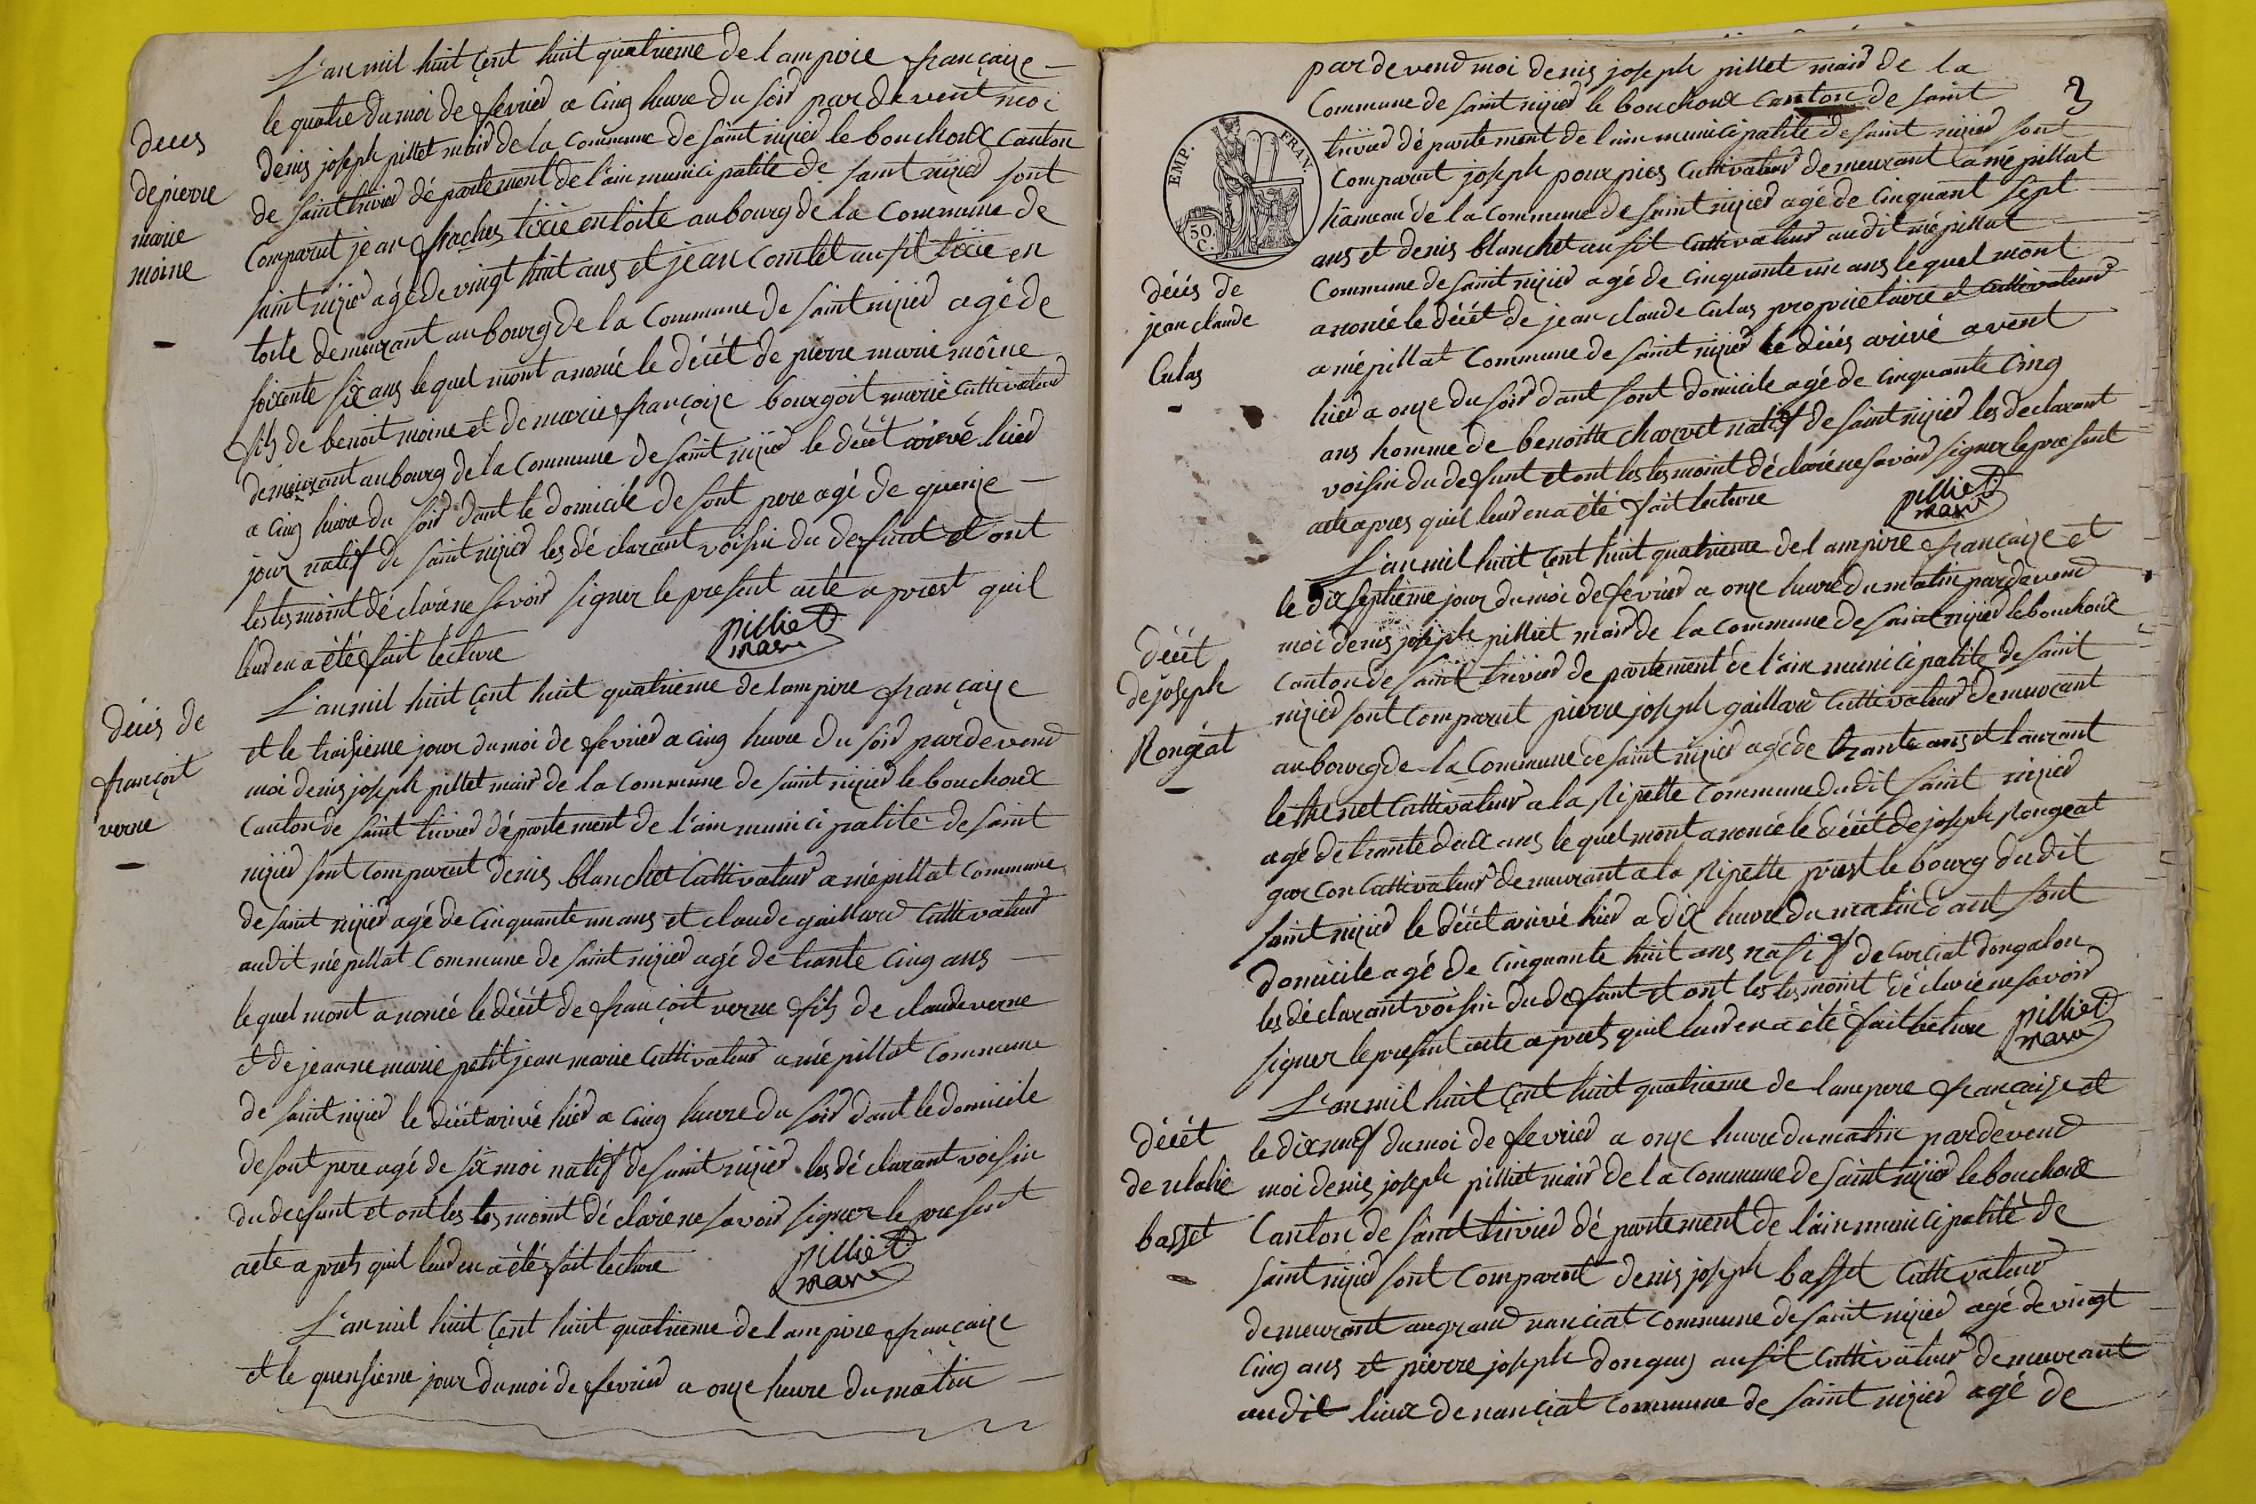 L'an mil huit çent huit quatrieme de l ampire françaize
le quatre du moi de fevrier a cinq heure du soir par devent moi
deces
de pierre
marie
moine
denis joseph pillet mair de la commune de saint nizier le bouchoux canton
de saint trivier dé partement de l'ain munici palite de saint nizier sont
comparut jean fraches tixie en toile au bourg de la commune de
saint nizier agé de vingt huit ans et jean comtet ausit tixie en
toile demeurant au bourg de la commune de saint nizier agé de
soixente six ans le quel mont anoncé le décét de pierre marie moine
fils de benoit moine et de marie françoize bourgoit marié cultivateur
demeurant au bourg de la commune de saint nizier le décét arivé hier
a cinq heure du soir dant le domicile de sont pere agé de quenze
jour natif de saint nizier les dé clarant voisin du defunt et ont
les tes moint dé claré ne savoir signer le present acte a prest quil
leur en a été fait lecture
pilliet
mare
décés de
françoit
verne
L'an mil huit çent huit quatrieme de lampire françaize
et le traisieme jour du moi de fevrier a cinq heure du soir pardevend
moi denis joseph pillet mair de la commune de saint nizier le bouchoux
canton de saint trivier dé partement de l'ain munici palite de saint
nizier sont comparut denis blanchet cultivateur a mépillat commune
de saint nizier agé de cinquante un ans et claude gaillard cultivateur
audit mépillat commune de saint nizier agé de trante cinq ans
le quel mont anoncé le décét de françoit verne fils de claude verne
et de jeanne marie petit jean marie cultivateur a mé pillat commune
de saint nizier le décét arivé hier a cinq heure du soir dant le domicile
de sont pere agé de six moi natif de saint nizier les dé clarant voisin
du defunt et ont les tes moint dé claré ne savoir signer le present
acte a prets quil leur en a été fait lecture
pilliet
mare
L'an mil huit çent huit quatrieme de l ampire françaize
et le quensieme jour du moi de fevrier a onze heure du matin
par devend moi denis joseph pillet mair de la
3
commune de saint nizier le bouchoux canton de saint
trivier dé partement de l'ain municipalite de saint nizier sont
EMP. FRAN.
50 C.
comparut joseph poux pies cultivateur demeurant a mépillat
hameau de la commune de saint nizier agé de cinquant sept
ans et denis blanchet ausit cultivateur audit mépillat
commune de saint nizier agé de cinquante un ans le quel mont
décés de
jean claude
Culas
anoncé le décét de jean claude Culas proprietaire et cultivateur
a mépillat commune de saint nizier le décés arivé avent
hier a onze du soir dant sont domicile agé de cinquante cinq
ans homme de benoitte charvet natif de saint nizier les declarant
voisin du defunt et ont les tes moint déclaré ne savoir signer le present
acte apres quil leur en a été fait lecture
pilliet
mare
L'an mil huit çent huit quatrieme de l ampire françaize et
le dix septieme jour du moi de fevrier a onze heure du matin par devend
moi denis joseph pilliet mair de la commune de saint nizier le bouchoux
décét
de joseph
Rongeat
canton de saint trivier de partement de l'ain munici palite de saint
nizier sont comparut pierre joseph gaillard cultivateur demeurant
au bourg de la commune de saint nizier agé de trante ans et laurant
le thenet cultivateur a la Ripette commune dudit saint nizier
agé de trante deux ans le quel mont anoncé le décét de joseph Rongeat
garcon cultivateur demeurant a la Ripette prest le bourg dudit
saint nizier le décét arivé hier a dix heure du matin dant sont
domicile agé de cinquante huit ans natif de curciat dongalon
les déclarant voisin du defunt et ont les tes moint dé claré ne savoir
signer le present acte a prets quil leur en a été fait lecture
pilliet
mare
L'an mil huit çent huit quatrieme de lampire françaize et
décét
de ulalie
basset
le dix neuf du moi de fevrier a onze heure du matin par devend
moi denis joseph pilliet mair de la commune de saint nizier le bouchoux
canton de saint trivier dé partement de l'ain munici palité de
saint nizier sont comparut denis joseph basset cultivateur
demeurant au grand nanciat commune de saint nizier agé de vingt
cinq ans et pierre joseph donguy ausit cultivateur demeurant
audit lieux de nançiat commune de saint nizier agé de